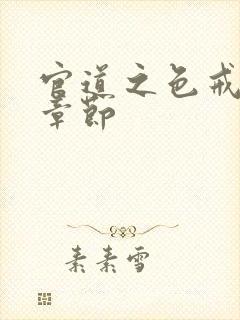 官道之色戒
章节
素素雪